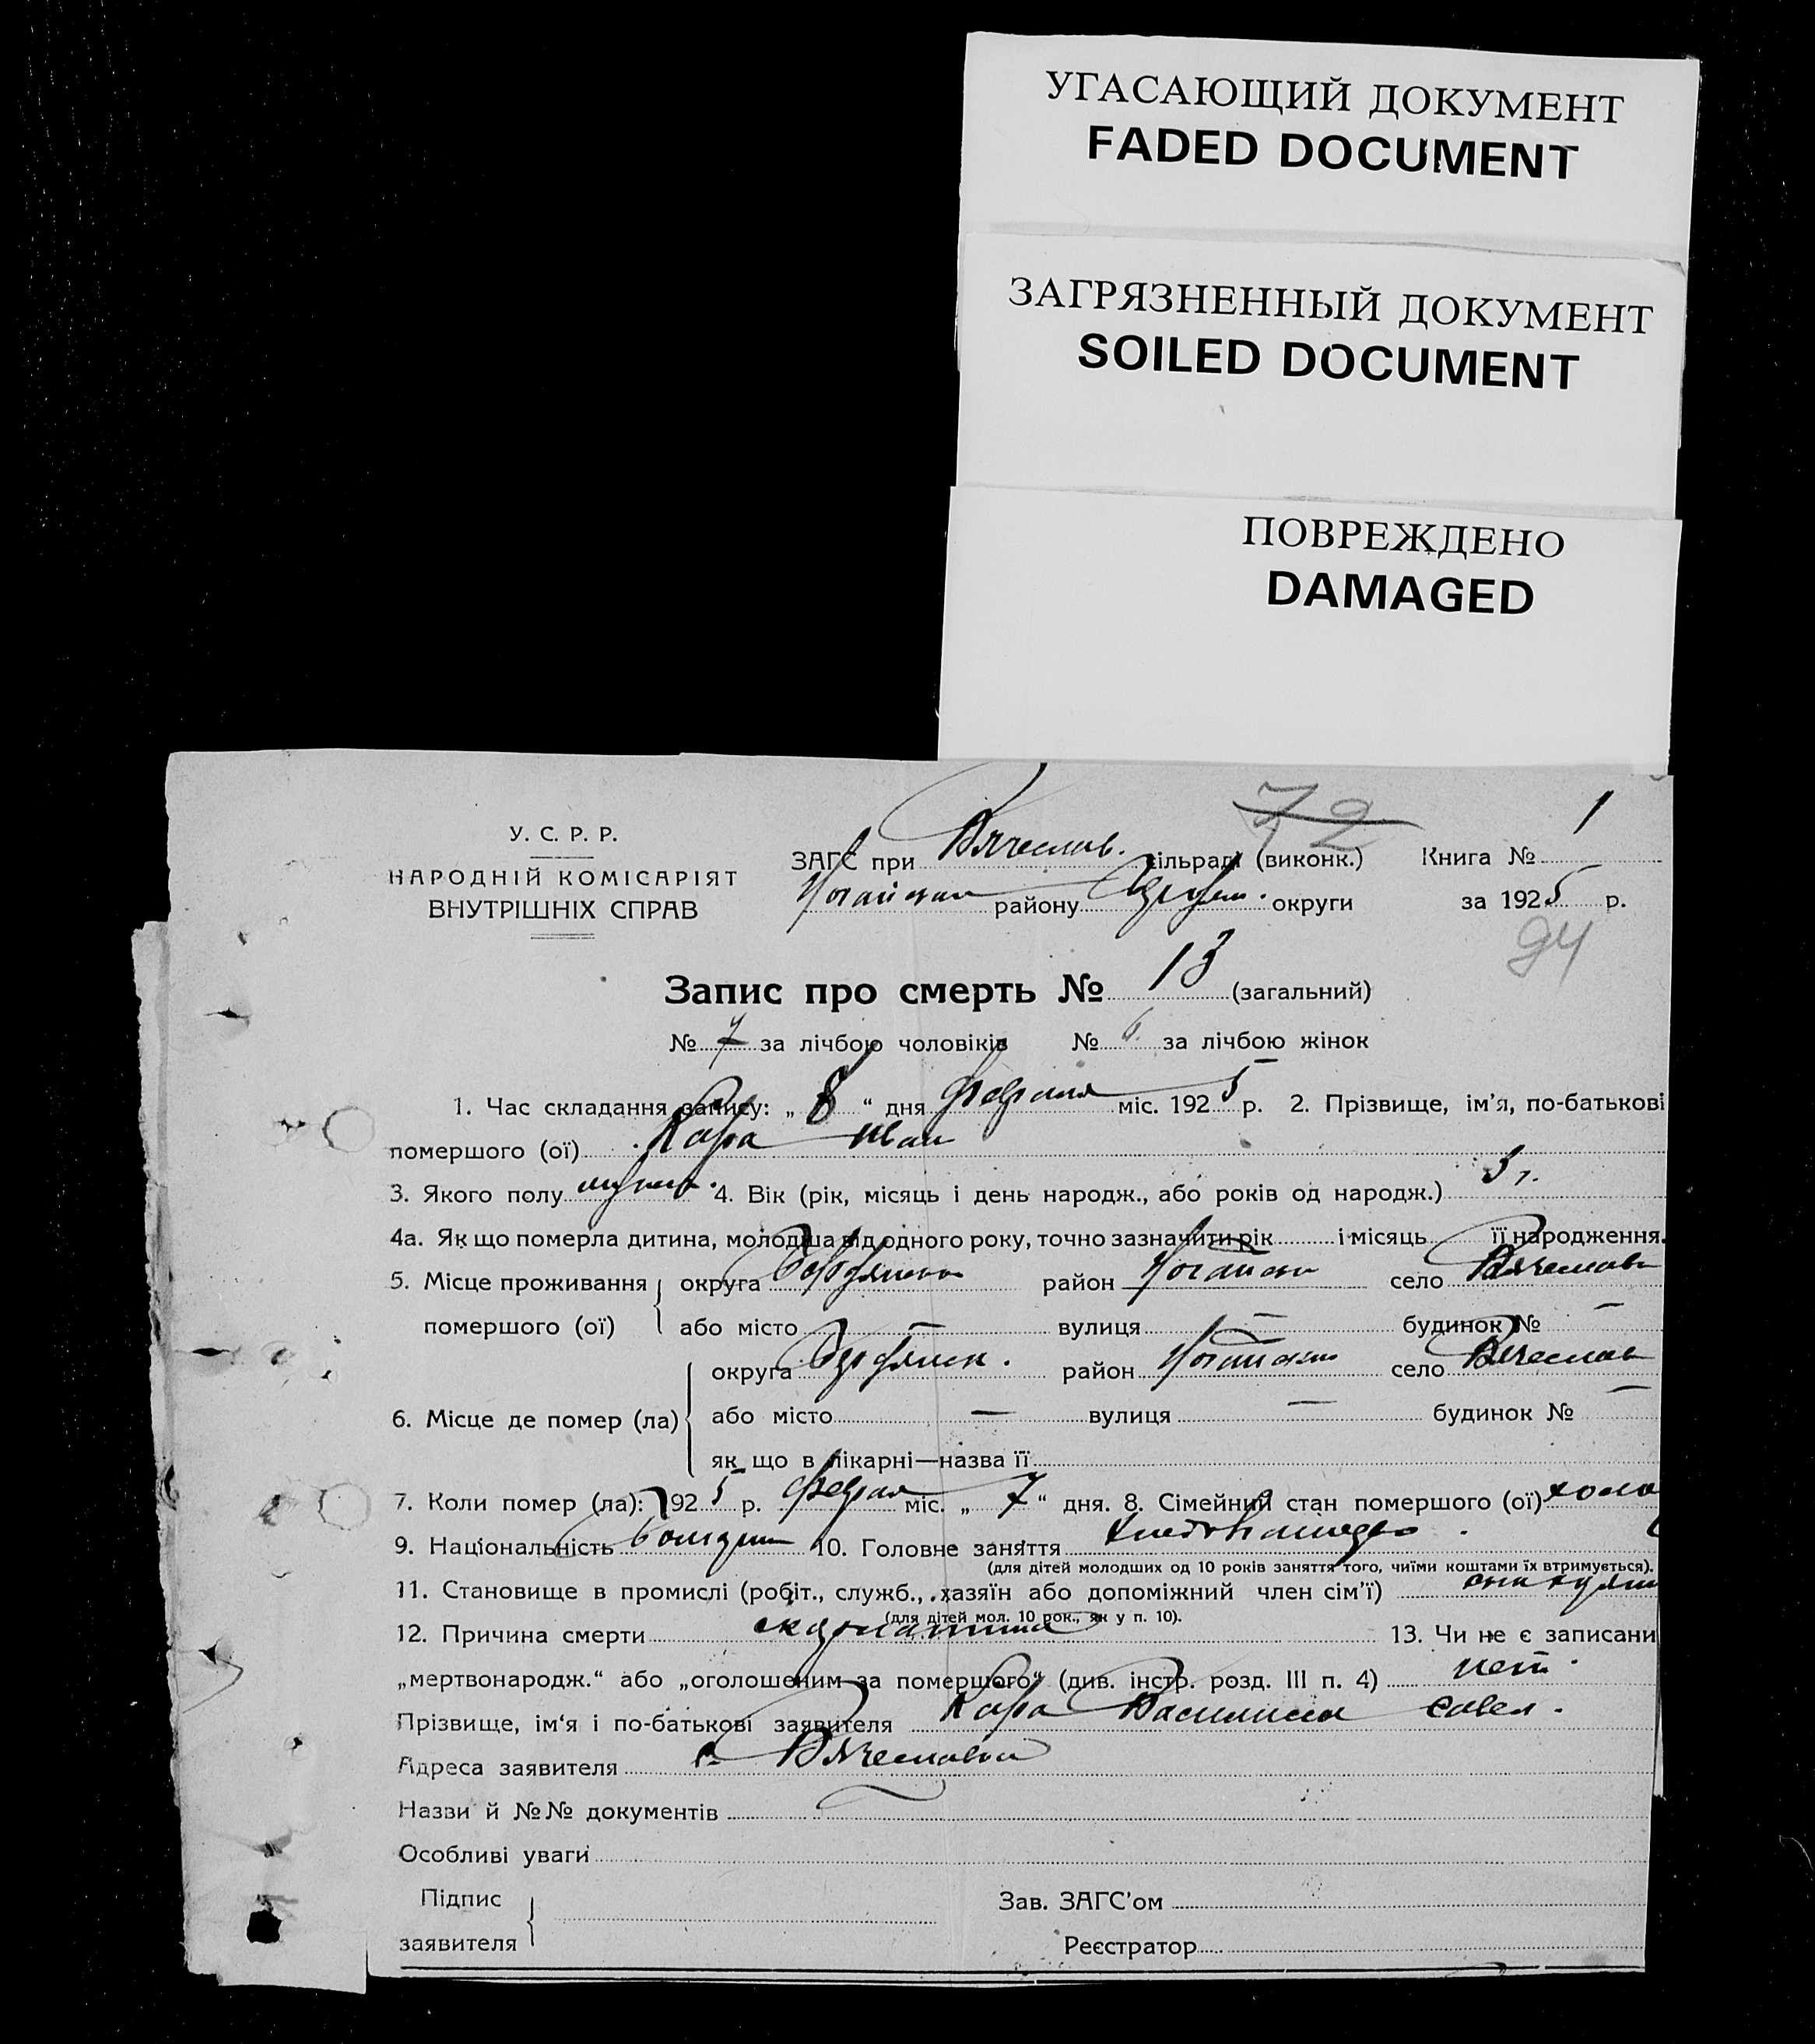 УГАСАЮЩИЙ ДОКУМЕНТ
FADED DOCUMENT
ЗАГРЯЗНЕННЫЙ ДОКУМЕНТ
SOILED DOCUMENT
ПОВРЕЖДЕНО
DAMAGED
72
У. С. Р. Р.
НАРОДНІЙ КОМІСАРІЯТ
ВНУТРІШНІХ СПРАВ
ЗАГС при Вячеслав. сільраді (виконк.) Книга № 1
району округи за 1925 р.
94
Запис про смерть № 13 (загальний)
№ 7 за лічбою чоловіків № 6 за лічбою жінок
1. Час складання запису: „ 8 “ дня февраля міс. 1925 р. 2. Прізвище, ім'я, по-батькові
помершого (ої) Кара Иван
3. Якого полу 4. Вік (рік, місяць і день народж., або років од народж.) 3 г.
4а. Як що померла дитина, молодша від одного року, точно зазначити рік і місяць її народження.
5. Місце проживання округа район село
помершого (ої) або місто — вулиця — будинок № —
округа район село
6. Місце де помер (ла) або місто — вулиця — будинок № —
як що в лікарні—назва її
7. Коли помер (ла): 1925 р. міс. „ 7 “ дня. 8. Сімейний стан помершого (ої)
9. Національність 10. Головне заняття
(для дітей молодших од 10 років заняття того, чиїми коштами їх втримується).
11. Становище в промислі (робіт., служб., хазяїн або допоміжний член сім'ї)
(для дітей мол. 10 рок., як у п. 10).
12. Причина смерти скарлатина 13. Чи не є записани
„мертвонародж.“ або „оголошеним за помершого“ (див. інстр. розд. III п. 4) нет
Прізвище, ім'я і по-батькові заявителя Кара Савел.
Адреса заявителя с. Вячеславка
Назви й №№ документів
Особливі уваги
Підпис
заявителя
Зав. ЗАГС'ом
Реєстратор